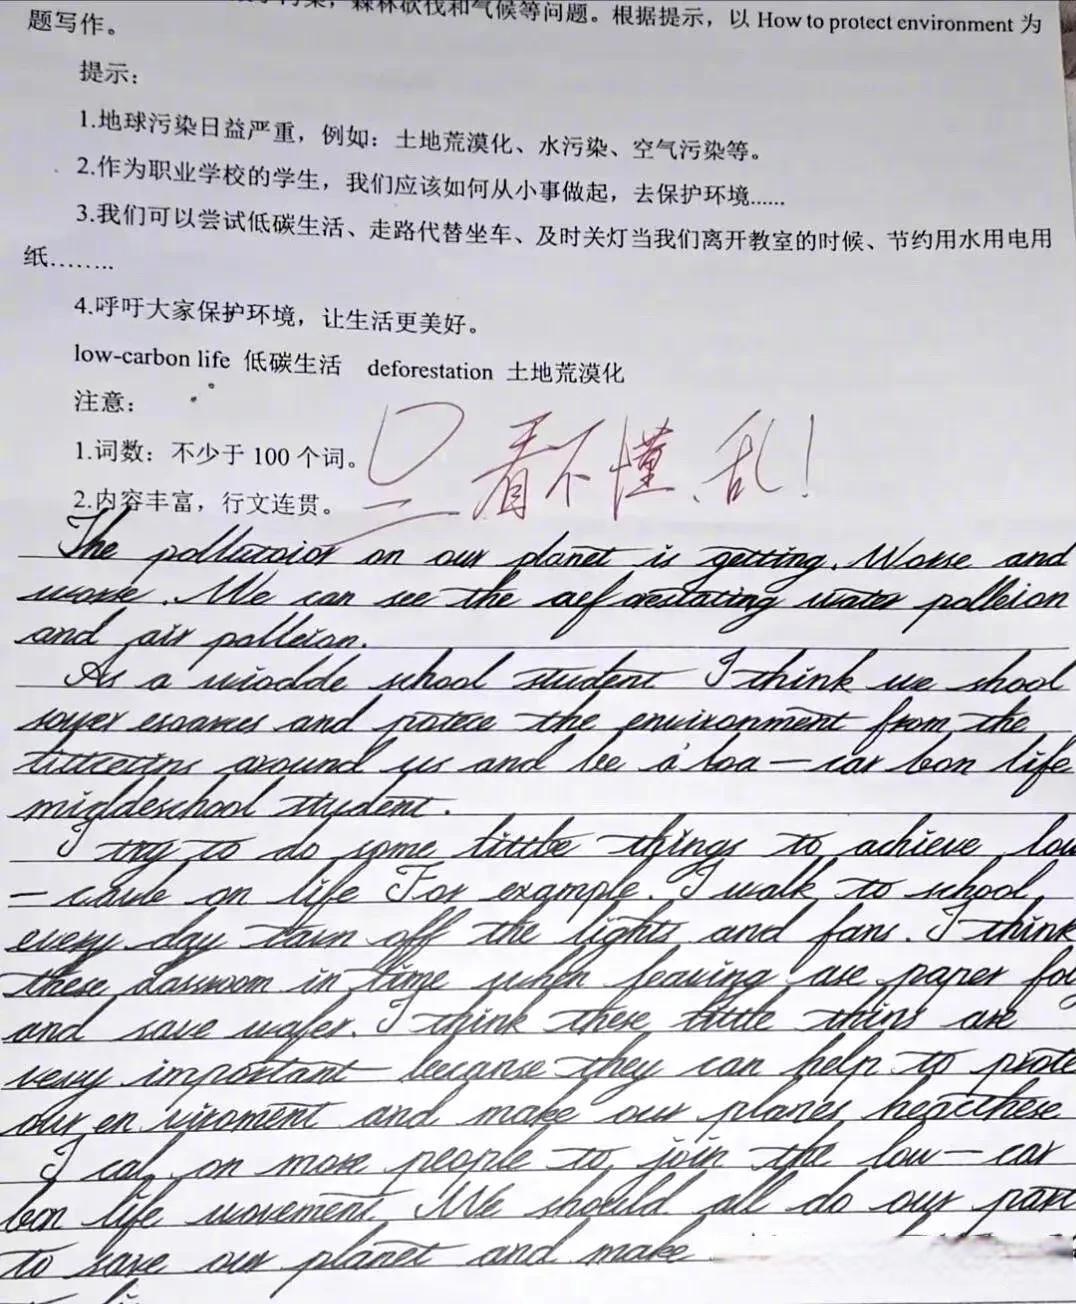 污染，森林砍伐和气候等问题。根据提示，以 How to protect environment 为
题写作。
提示：
1.地球污染日益严重，例如：土地荒漠化、水污染、空气污染等。
2.作为职业学校的学生，我们应该如何从小事做起，去保护环境......
3.我们可以尝试低碳生活、走路代替坐车、及时关灯当我们离开教室的时候、节约用水用电用
纸........
4.呼吁大家保护环境，让生活更美好。
low-carbon life 低碳生活 deforestation 土地荒漠化
注意：
1.词数：不少于 100 个词。
2.内容丰富，行文连贯。
看不懂、乱！
The pollutoior on our planet is getting. Worse and
worse. We can see the aeforestating water polleion
and air polleion.
As a wiodde school student I think we shool
and protece the environment from the
around us and be a loa-car bon life
migldeschool student.
I try to do some little things to achieve low
- on life For example. I walk to school
every day off the lights and fans. I think
these in time when leaving use paper
and save wafer. I think these little thins are
very important because they can help to prote
our en viroment and make our planes
I cal on more people to join the low-car
bon life movement. We should all do our part
to save our planet and make